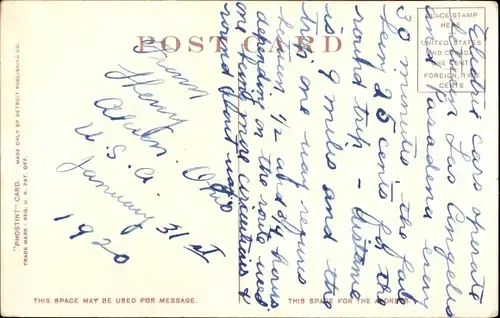 POST CARD
PLACE STAMP
HERE
UNITED STATES
AND CANADA
ONE CENT
FOREIGN, TWO
CENTS
"PHOSTINT" CARD.
MADE ONLY BY DETROIT PUBLISHING CO.
TRADE MARK - REG. U. S. PAT. OFF.
From
Henry
Ohio
U. S. A.
January 31st
1920
Electric cars operate
between Los Angeles
and Pasadena every
30 minutes, the fare
being 25 cents for the
round trip - Distance
is 9 miles and the
trip one way requires
between 1/2 and 3/4 hour
depending on the route used
one being more circuitous &
round about
THIS SPACE MAY BE USED FOR MESSAGE.
THIS SPACE FOR THE ADDRESS